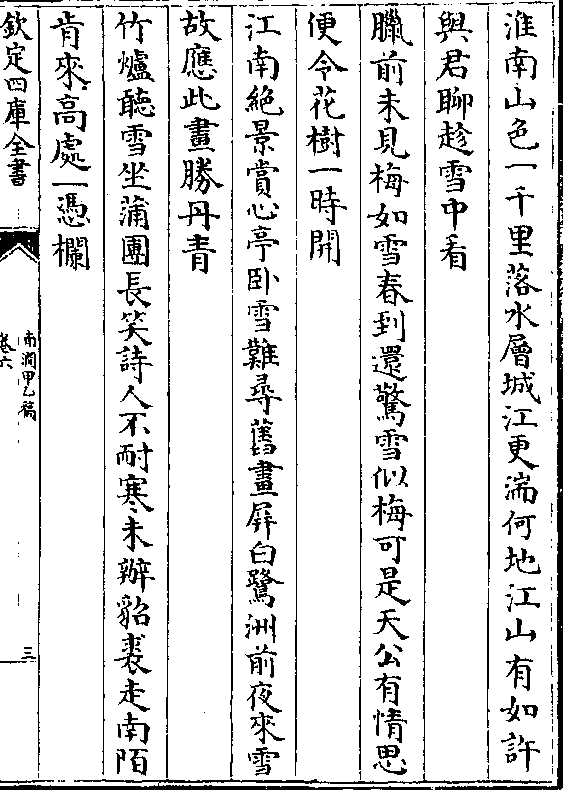 淮南山色一千里落水層城江更湍何地江山有如許
與君聊趁雪中看
臘前未見梅如雪春到還驚雪似梅可是天公有情思
便令花樹一時開
江南絶景賞心亭卧雪難尋舊畫屏白鷺洲前夜來雪
故應此畫勝丹青
竹爐聽雪坐蒲團長笑詩人不耐寒未辦貂裘走南陌
肯來高處一憑欄
欽定四庫全書
南澗甲乙稿
卷六
三